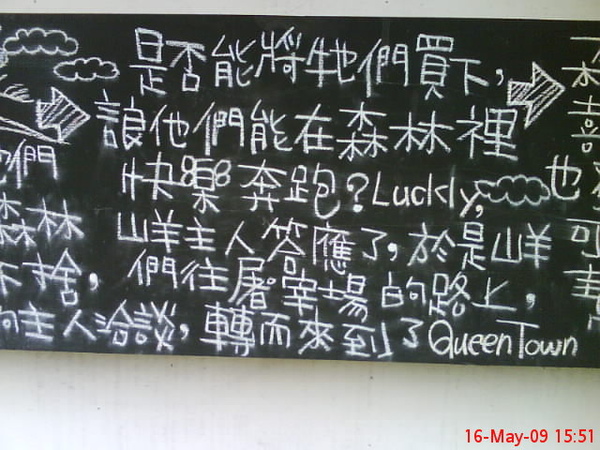 們
森林
捨，
主人洽談，
是否能將牠們買下，
誏他們能在森林裡
快樂奔跑？Luckly,
山羊主人答應了，於是山羊
們往屠宰場的路上，
轉而來到了QueenTown
也
可
16-May-09 15:51